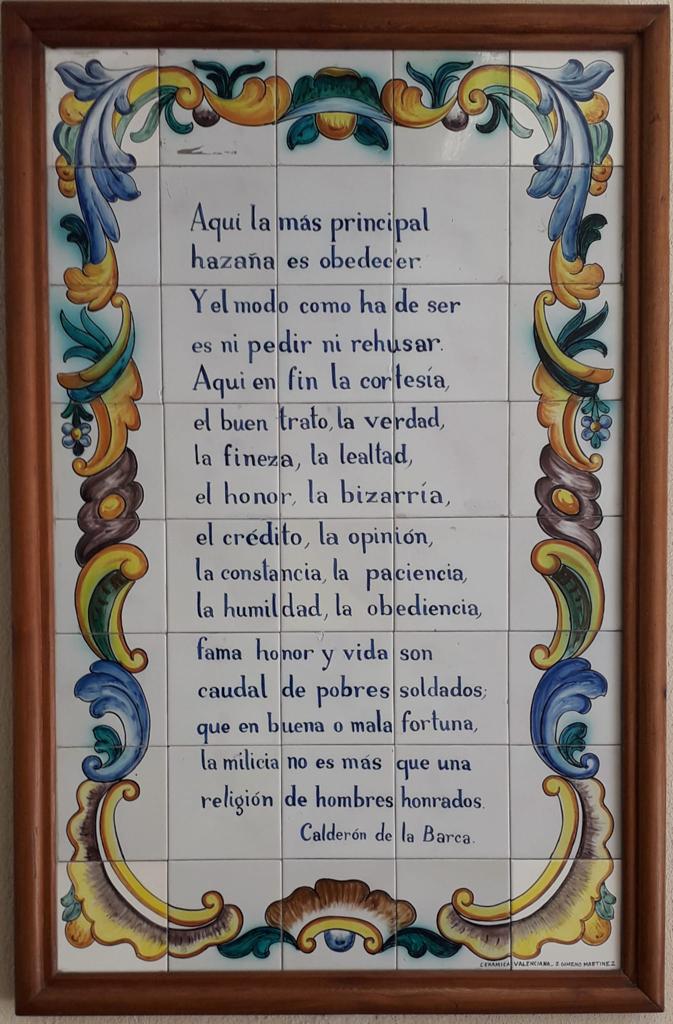 Aqui la más principal
hazaña es obedecer.
Y el modo como ha de ser
es ni pedir ni rehusar.
Aqui en fin la cortesía,
el buen trato, la verdad,
la fineza, la lealtad,
el honor, la bizarría,
el crédito, la opinión,
la constancia, la paciencia,
la humildad, la obediencia,
fama honor y vida son
caudal de pobres soldados;
que en buena o mala fortuna,
la milicia no es más que una
religión de hombres honrados.
Calderón de la Barca.
CERAMICA VALENCIANA_J. GIMENO MARTINEZ